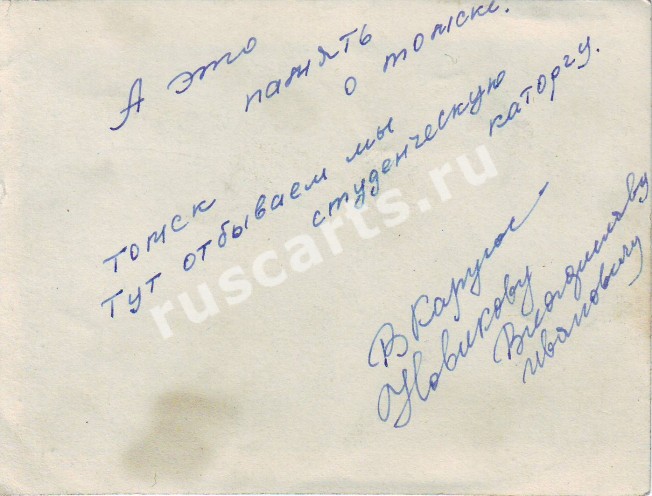 А это
память
о томске.
томск
Тут отбываем мы
студенческую
каторгу.
В Карусе
Новикову
Владиславу
Ивановичу
ruscarts.ru